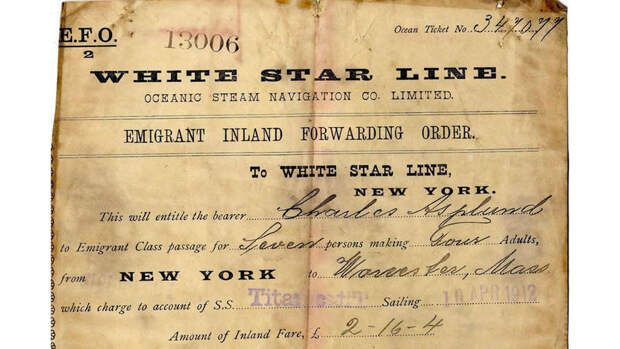 E.F.O. 13006 Ocean Ticket No. 347077
2
WHITE STAR LINE.
OCEANIC STEAM NAVIGATION CO. LIMITED.
EMIGRANT INLAND FORWARDING ORDER.
To WHITE STAR LINE,
NEW YORK.
This will entitle the bearer Charles Asplund
to Emigrant Class passage for Seven persons making Four Adults,
from NEW YORK to Worcester, Mass
which charge to account of S.S. Titanic Sailing 10 APR 1912
Amount of Inland Fare, £ 2-16-4